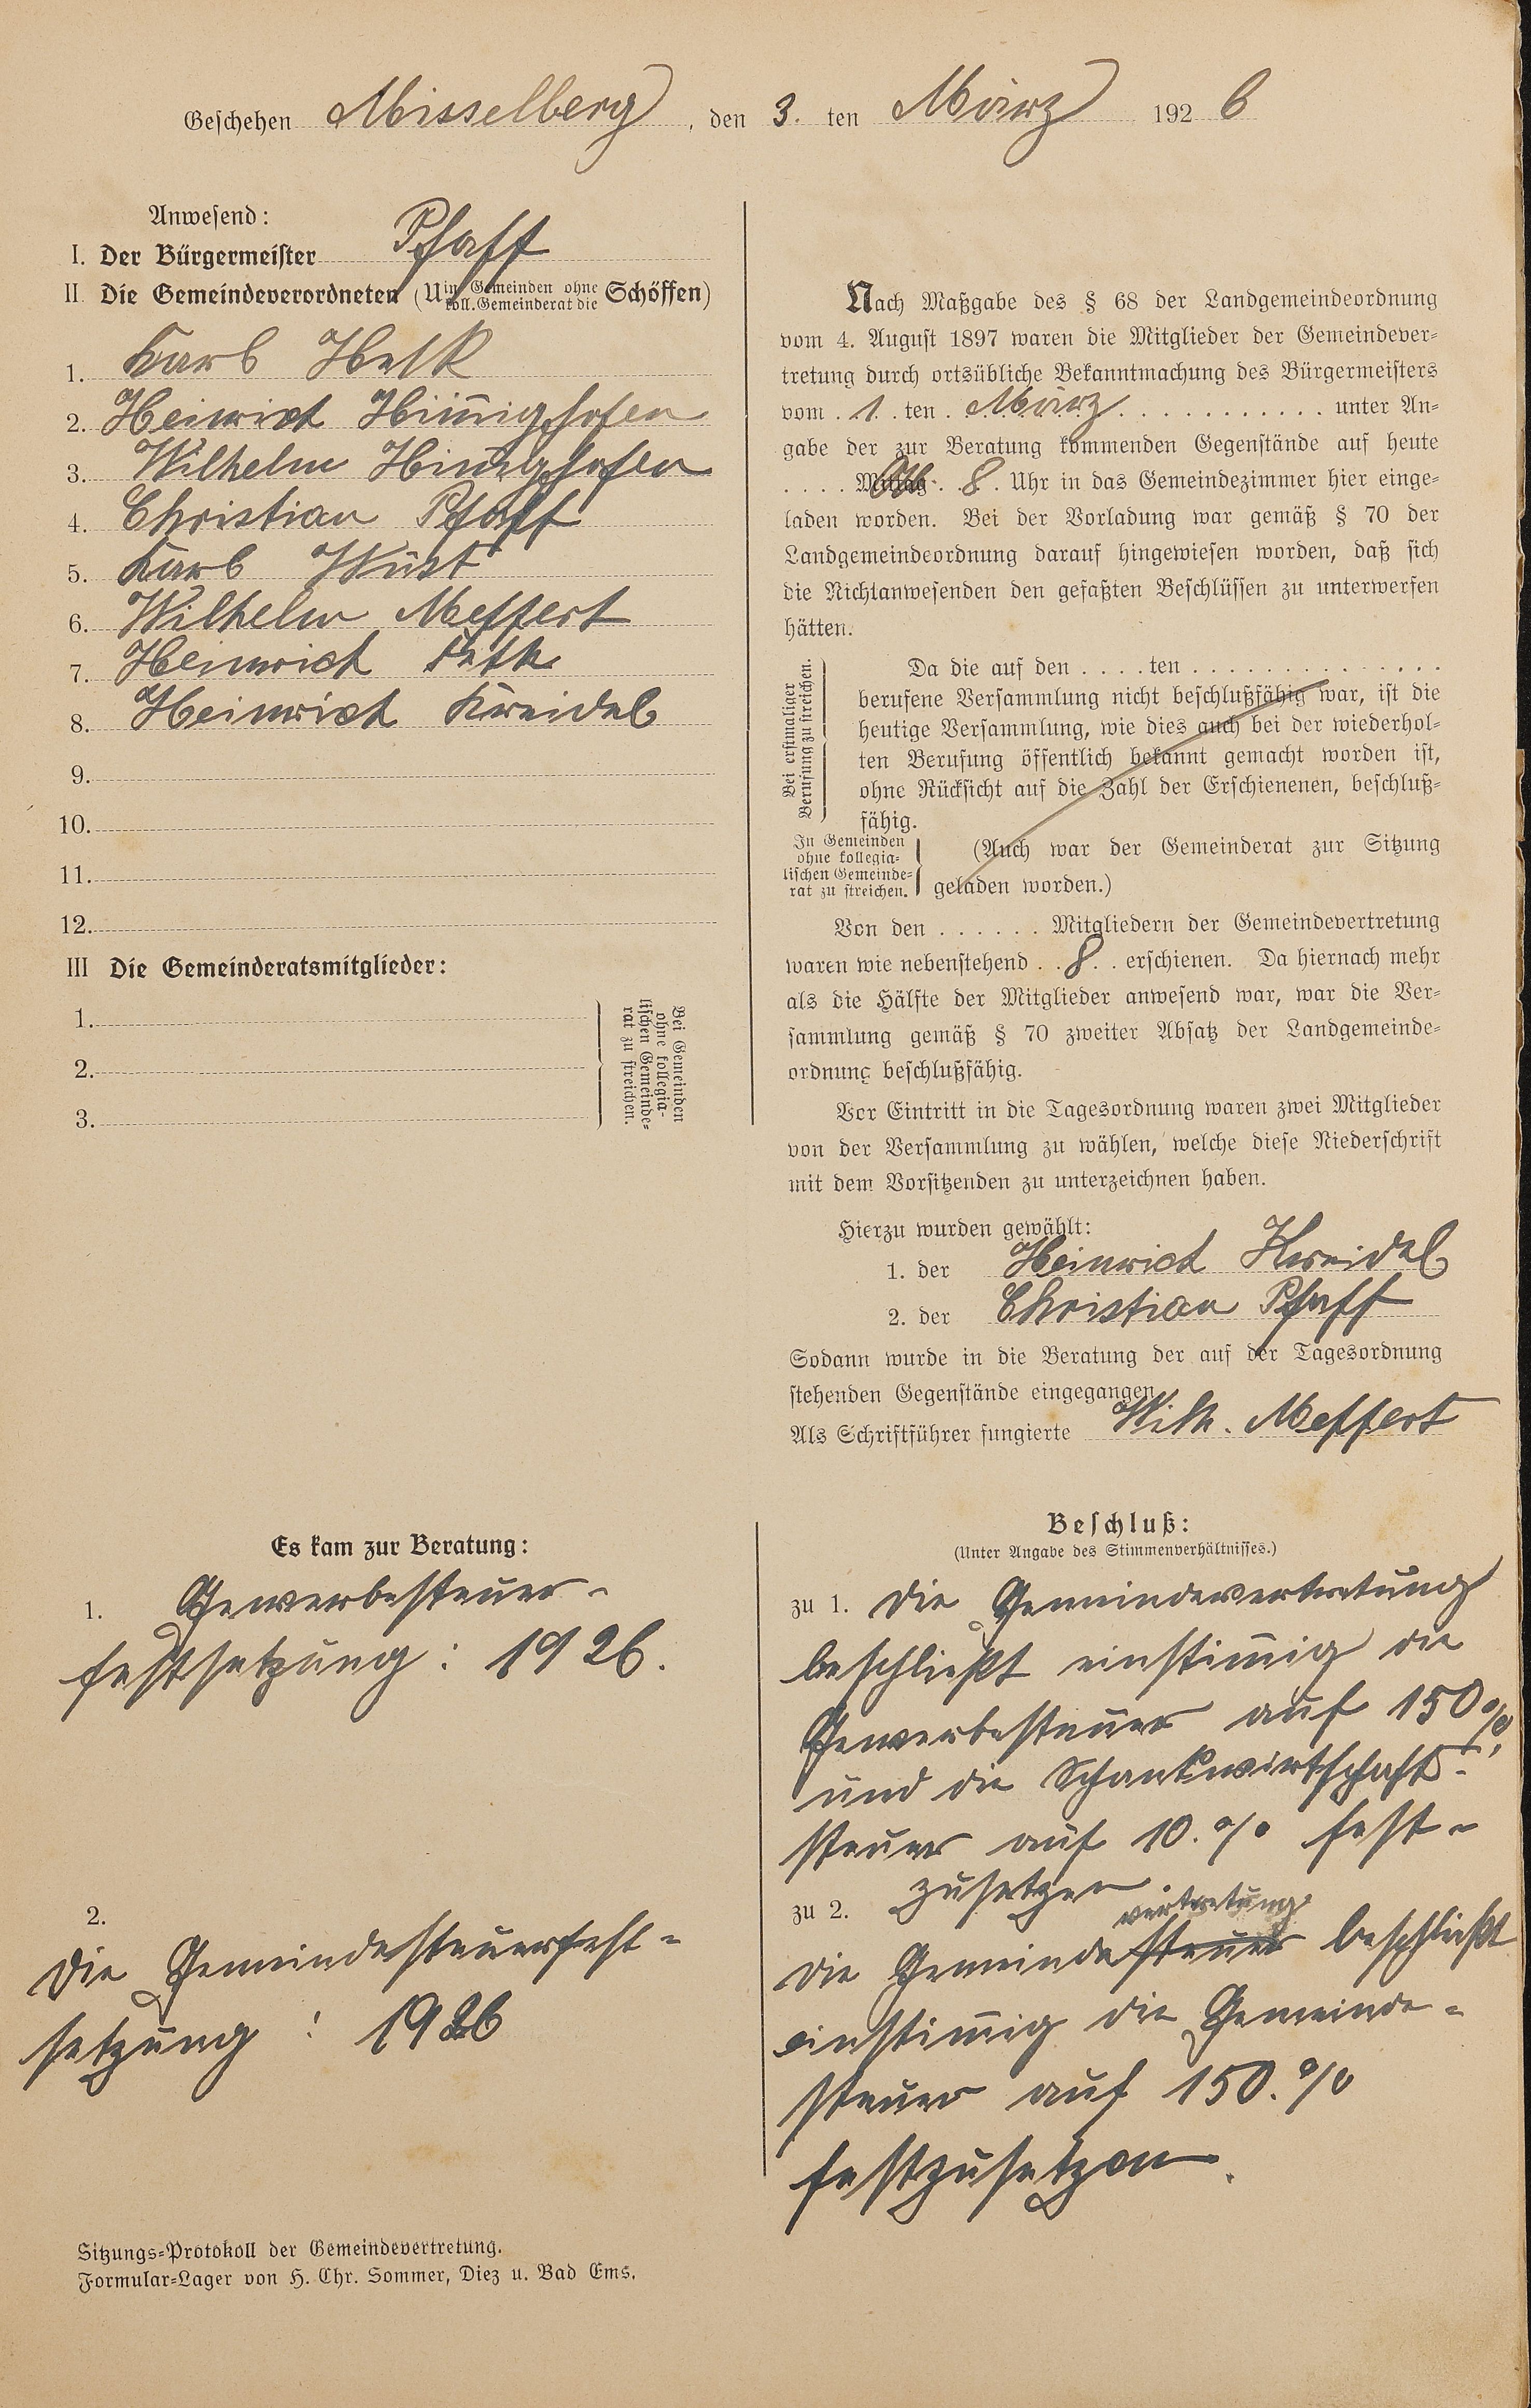 Geschehen Misselberg, den 3. ten März 1926
Anwesend:
I. Der Bürgermeister Pfaff
II Die Gemeindeverordneten (U in Gemeinden ohne koll. Gemeinderat die Schöffen)
1. Karl
2. Heinrich Himmighofen
3. Wilhelm Himmighofen
4. Christian Pfaff
5. Karl Wüst
6. Wilhelm Meffert
7. Heinrich
8. Heinrich Kreidel
9.
10.
11.
12.
III Die Gemeinderatsmitglieder:
1.
2.
3.
Bei Gemeinden
ohne kollegia-
lischen Gemeinde-
rat zu streichen.
Nach Maßgabe des § 68 der Landgemeindeordnung
vom 4. August 1897 waren die Mitglieder der Gemeindever-
tretung durch ortsübliche Bekanntmachung des Bürgermeisters
vom 1. ten März unter An-
gabe der zur Beratung kommenden Gegenstände auf heute
Mittag 8. Uhr in das Gemeindezimmer hier einge-
laden worden. Bei der Vorladung war gemäß § 70 der
Landgemeindeordnung darauf hingewiesen worden, daß sich
die Nichtanwesenden den gefaßten Beschlüssen zu unterwerfen
hätten.
Bei erstmaliger
Berufung zu streichen.
Da die auf den . . . . ten . . . . . . . . . . . . . .
berufene Versammlung nicht beschlußfähig war, ist die
heutige Versammlung, wie dies auch bei der wiederhol-
ten Berufung öffentlich bekannt gemacht worden ist,
ohne Rücksicht auf die Zahl der Erschienenen, beschluß-
fähig.
In Gemeinden
ohne kollegia-
lischen Gemeinde-
rat zu streichen.
(Auch war der Gemeinderat zur Sitzung
geladen worden.)
Von den . . . . . . Mitgliedern der Gemeindevertretung
waren wie nebenstehend . . 8. . erschienen. Da hiernach mehr
als die Hälfte der Mitglieder anwesend war, war die Ver-
sammlung gemäß § 70 zweiter Absatz der Landgemeinde-
ordnung beschlußfähig.
Vor Eintritt in die Tagesordnung waren zwei Mitglieder
von der Versammlung zu wählen, welche diese Niederschrift
mit dem Vorsitzenden zu unterzeichnen haben.
Hierzu wurden gewählt:
1. der Heinrich Kreidel
2. der Christian Pfaff
Sodann wurde in die Beratung der auf der Tagesordnung
stehenden Gegenstände eingegangen.
Als Schriftführer fungierte Wilh. Meffert
Es kam zur Beratung:
1. Gewerbesteuer-
festsetzung: 1926.
2.
Die Gemeindesteuerfest-
setzung: 1926
Beschluß:
(Unter Angabe des Stimmenverhältnisses.)
zu 1. Die Gemeindevertretung
beschließt einstimmig die
Gewerbesteuer auf 150%,
und die Schankwirtschaft-
steuer auf 10.% fest-
zusetzen.
zu 2.
vertretung
die Gemeindesteuer beschließt
einstimmig die Gemeinde-
steuer auf 150.%
festzusetzen.
Sitzungs-Protokoll der Gemeindevertretung.
Formular-Lager von H. Chr. Sommer, Diez u. Bad Ems.